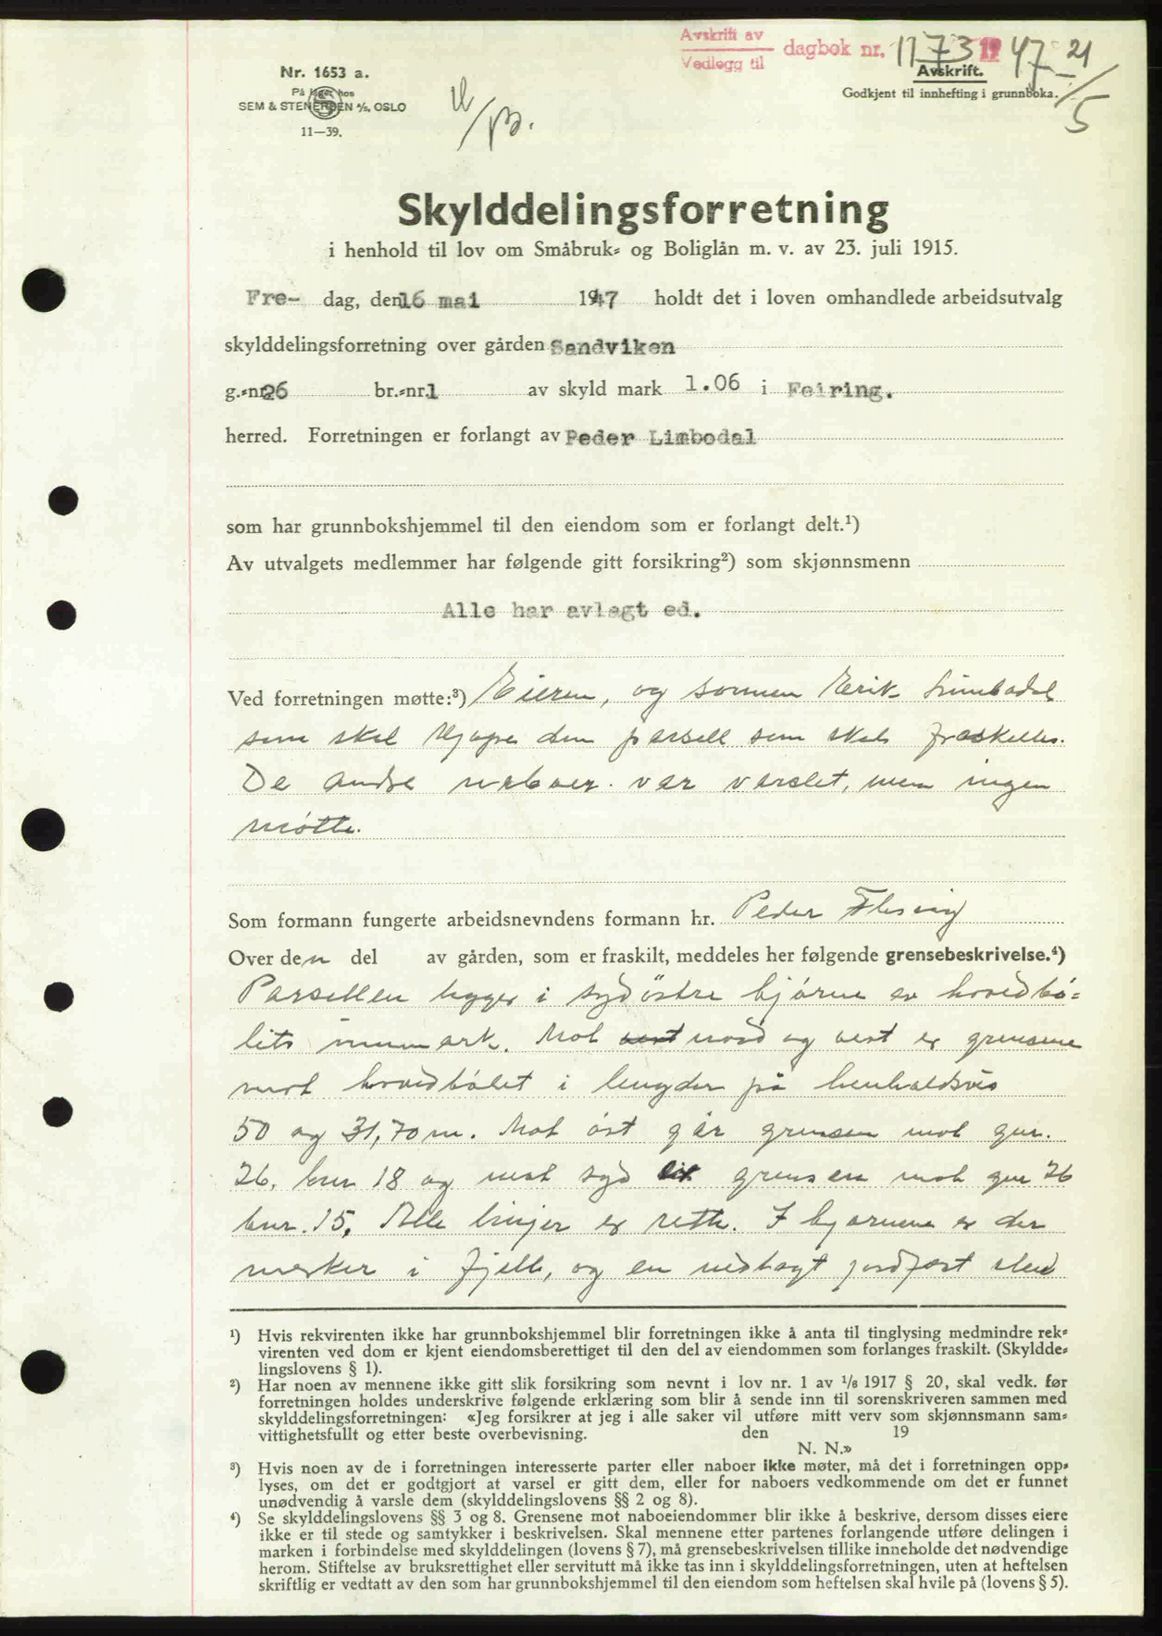 Avskrift av
Vedlegg til dagbok nr. 1173 19 47 - 21/5
Avskrift.
Godkjent til innhefting i grunnboka.
Nr. 1653 a.
På lager hos
SEM & STENERSEN A/S, OSLO
11—39.
Skylddelingsforretning
i henhold til lov om Småbruk- og Boliglån m. v. av 23. juli 1915.
Fre- dag, den 16 mai 1947 holdt det i loven omhandlede arbeidsutvalg
skylddelingsforretning over gården Sandviken
g.-nr. 26 br.-nr. 1 av skyld mark 1.06 i Feiring.
herred. Forretningen er forlangt av Peder Limbodal
som har grunnbokshjemmel til den eiendom som er forlangt delt.¹)
Av utvalgets medlemmer har følgende gitt forsikring²) som skjønnsmenn
Alle har avlagt ed.
Ved forretningen møtte:³) Eieren, og sønnen Erik Limbodal
som skal kjøpe den parsell som skal fraskilles.
De andre naboer var varslet, men ingen
møtte.
Som formann fungerte arbeidsnevndens formann hr. Peder Flesvig
Over den del av gården, som er fraskilt, meddeles her følgende grensebeskrivelse.⁴)
Parsellen ligger i sydøstre hjørne av hovedbø-
lets innmark. Mot nord og vest er grensene
mot hovedbølet i lengder på henholdsvis
50 og 31,70 m. Mot øst går grensen mot gnr.
26, bnr 18 og mot syd grensen mot gnr 26
bnr. 15. Alle linjer er rette. I hjørnene er der
merker i fjell, og en nedlagt jordfast sten
¹) Hvis rekvirenten ikke har grunnbokshjemmel blir forretningen ikke å anta til tinglysing medmindre rek-
virenten ved dom er kjent eiendomsberettiget til den del av eiendommen som forlanges fraskilt. (Skyldde-
lingslovens § 1).
²) Har noen av mennene ikke gitt slik forsikring som nevnt i lov nr. 1 av 1/6 1917 § 20, skal vedk. før
forretningen holdes underskrive følgende erklæring som blir å sende inn til sorenskriveren sammen med
skylddelingsforretningen: «Jeg forsikrer at jeg i alle saker vil utføre mitt verv som skjønnsmann sam-
vittighetsfullt og etter beste overbevisning. den 19
N. N.»
³) Hvis noen av de i forretningen interesserte parter eller naboer ikke møter, må det i forretningen opp-
lyses, om det er godtgjort at varsel er gitt dem, eller for naboers vedkommende om det er funnet
unødvendig å varsle dem (skylddelingslovens §§ 2 og 8).
⁴) Se skylddelingslovens §§ 3 og 8. Grensene mot naboeiendommer blir ikke å beskrive, dersom disses eiere
ikke er til stede og samtykker i beskrivelsen. Skal mennene etter partenes forlangende utføre delingen i
marken i forbindelse med skylddelingen (lovens § 7), må grensebeskrivelsen tillike inneholde det nødvendige
herom. Stiftelse av bruksrettighet eller servitutt må ikke tas inn i skylddelingsforretningen, uten at heftelsen
skriftlig er vedtatt av den som har grunnbokshjemmel til den eiendom som heftelsen skal hvile på (lovens § 5).